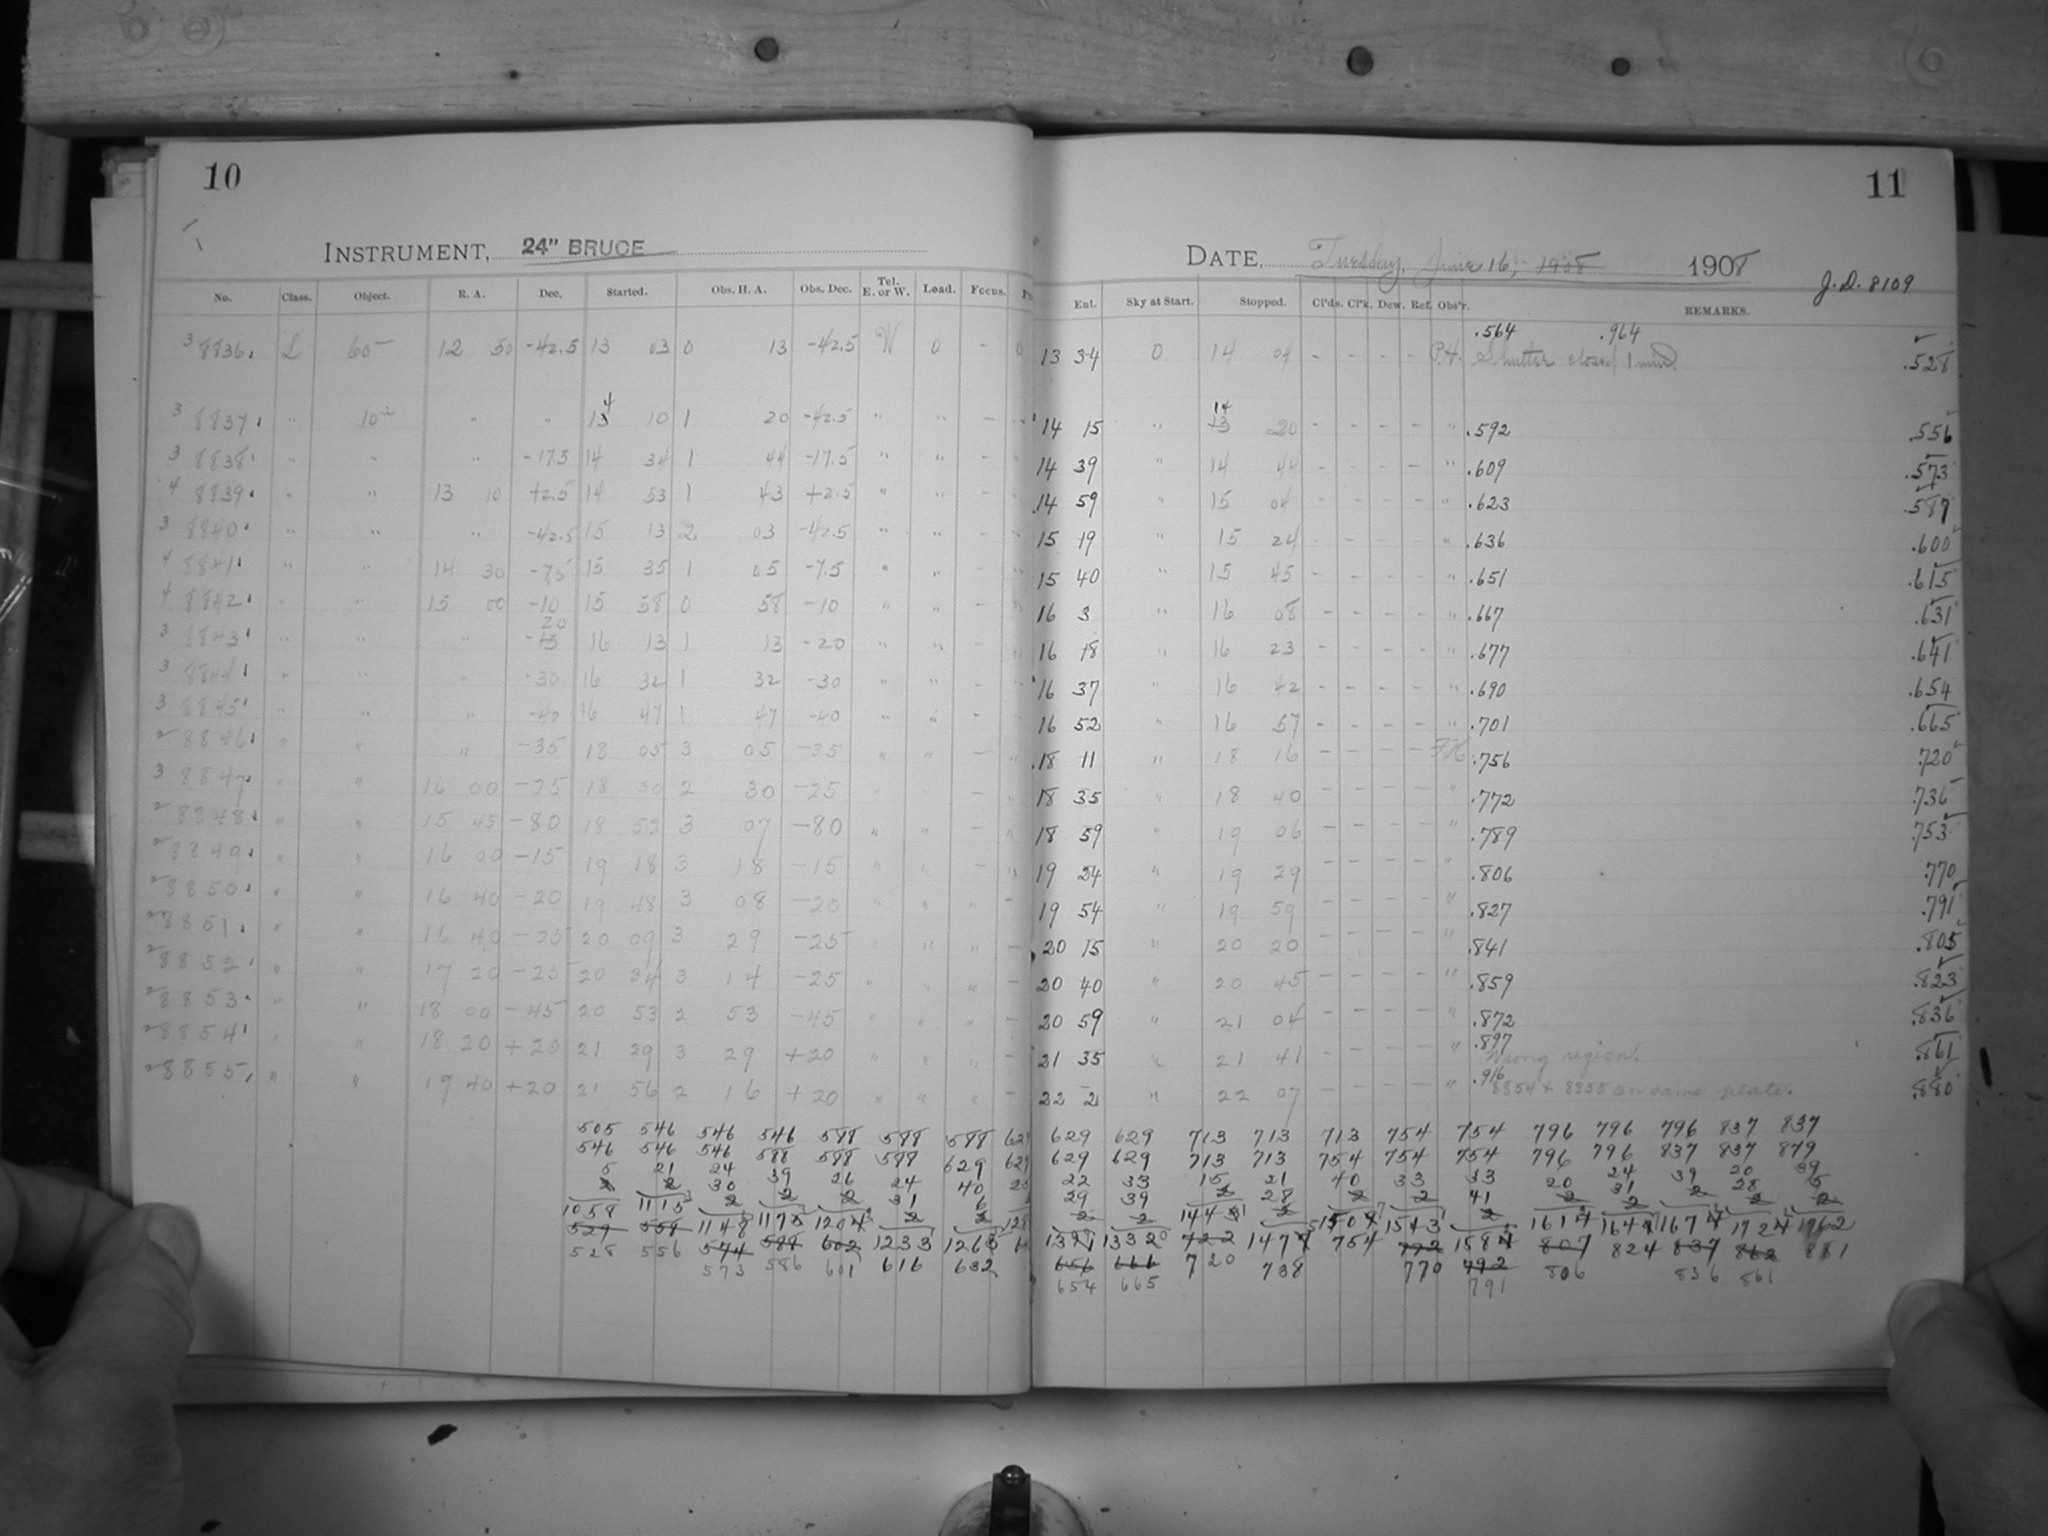 10
INSTRUMENT, 24" BRUCE
No. Class. Object. R. A. Dec. Started. Obs. H. A. Obs. Dec. Tel. E. or W. Load. Focus.
3 8836 L 60m 12 50 -42.5 13 03 0 13 -42.5 W 0 - 0
3 8837 " 10m " " 14 10 1 20 -42.5 " " - "
3 8838 " " " -17.5 14 34 1 44 -17.5 " " - "
4 8839 " " 13 10 +2.5 14 53 1 43 +2.5 " " - "
3 8840 " " " -42.5 15 13 2 03 -42.5 " " - "
4 8841 " " 14 30 -7.5 15 35 1 05 -7.5 " " - "
4 8842 " " 15 00 -10 15 58 0 58 -10 " " - "
3 8843 " " " -20 16 13 1 13 -20 " " - "
3 8844 " " " -30 16 32 1 32 -30 " " - "
3 8845 " " " -40 16 47 1 47 -40 " " -
2 8846 " " " -35 18 05 3 05 -35 " " - "
3 8847 " " 16 00 -25 18 30 2 30 -25 " " - "
2 8848 " " 15 45 -80 18 52 3 07 -80 " " - "
2 8849 " " 16 00 -15 19 18 3 18 -15 " " - "
2 8850 " " 16 40 -20 19 48 3 08 -20 " " " -
2 8851 " " 16 40 -25 20 09 3 29 -25 " " " -
2 8852 " " 17 20 -25 20 34 3 14 -25 " " " -
2 8853 " " 18 00 -45 20 53 2 53 -45 " " " -
2 8854 " " 18 20 +20 21 29 3 29 +20 " " " -
2 8855 " " 19 40 +20 21 56 2 16 +20 " " " -
505 546 546 546 588 588 588
546 546 546 588 588 588 629
5 21 24 39 26 24 40
2 2 30 2 2 31 6
1058 1115 1148 1173 1204 1233 1263
528 556 573 586 601 616 632
11
DATE, Tuesday, June 16, 1908 1908
J.D. 8109
Ent. Sky at Start. Stopped. Cl'ds. Cl'k. Dew. Ref. Obs'r. REMARKS.
.564 .964
13 34 0 14 04 - - - - P.H. Shutter closed 1 min. .528
14 15 " 14 20 - - - - " .592 .556
14 39 " 14 44 - - - - " .609 .573
14 59 " 15 04 - - - - " .623 .587
15 19 " 15 24 - - - - " .636 .600
15 40 " 15 45 - - - - " .651 .615
16 3 " 16 08 - - - - " .667 .631
16 18 " 16 23 - - - - " .677 .641
16 37 " 16 42 - - - - " .690 .654
16 52 " 16 57 - - - - " .701 .665
18 11 " 18 16 - - - - .756 .720
18 35 " 18 40 - - - - " .772 .736
18 59 " 19 06 - - - - " .789 .753
19 24 " 19 29 - - - - " .806 .770
19 54 " 19 59 - - - - " .827 .791
20 15 " 20 20 - - - - " .841 .805
20 40 " 20 45 - - - - " .859 .823
20 59 " 21 04 - - - - " .872 .836
21 35 " 21 41 - - - - " .897 Wrong region. .861
22 2 " 22 07 - - - - " .916 8854 & 8855 on same plate. .880
629 629 713 713 713 754 754 796 796 796 837 837
629 629 713 713 754 754 754 796 796 837 837 879
22 33 15 21 40 33 33 20 24 39 20 39
654 665 720 738 754 770 791 806 824 836 861 881